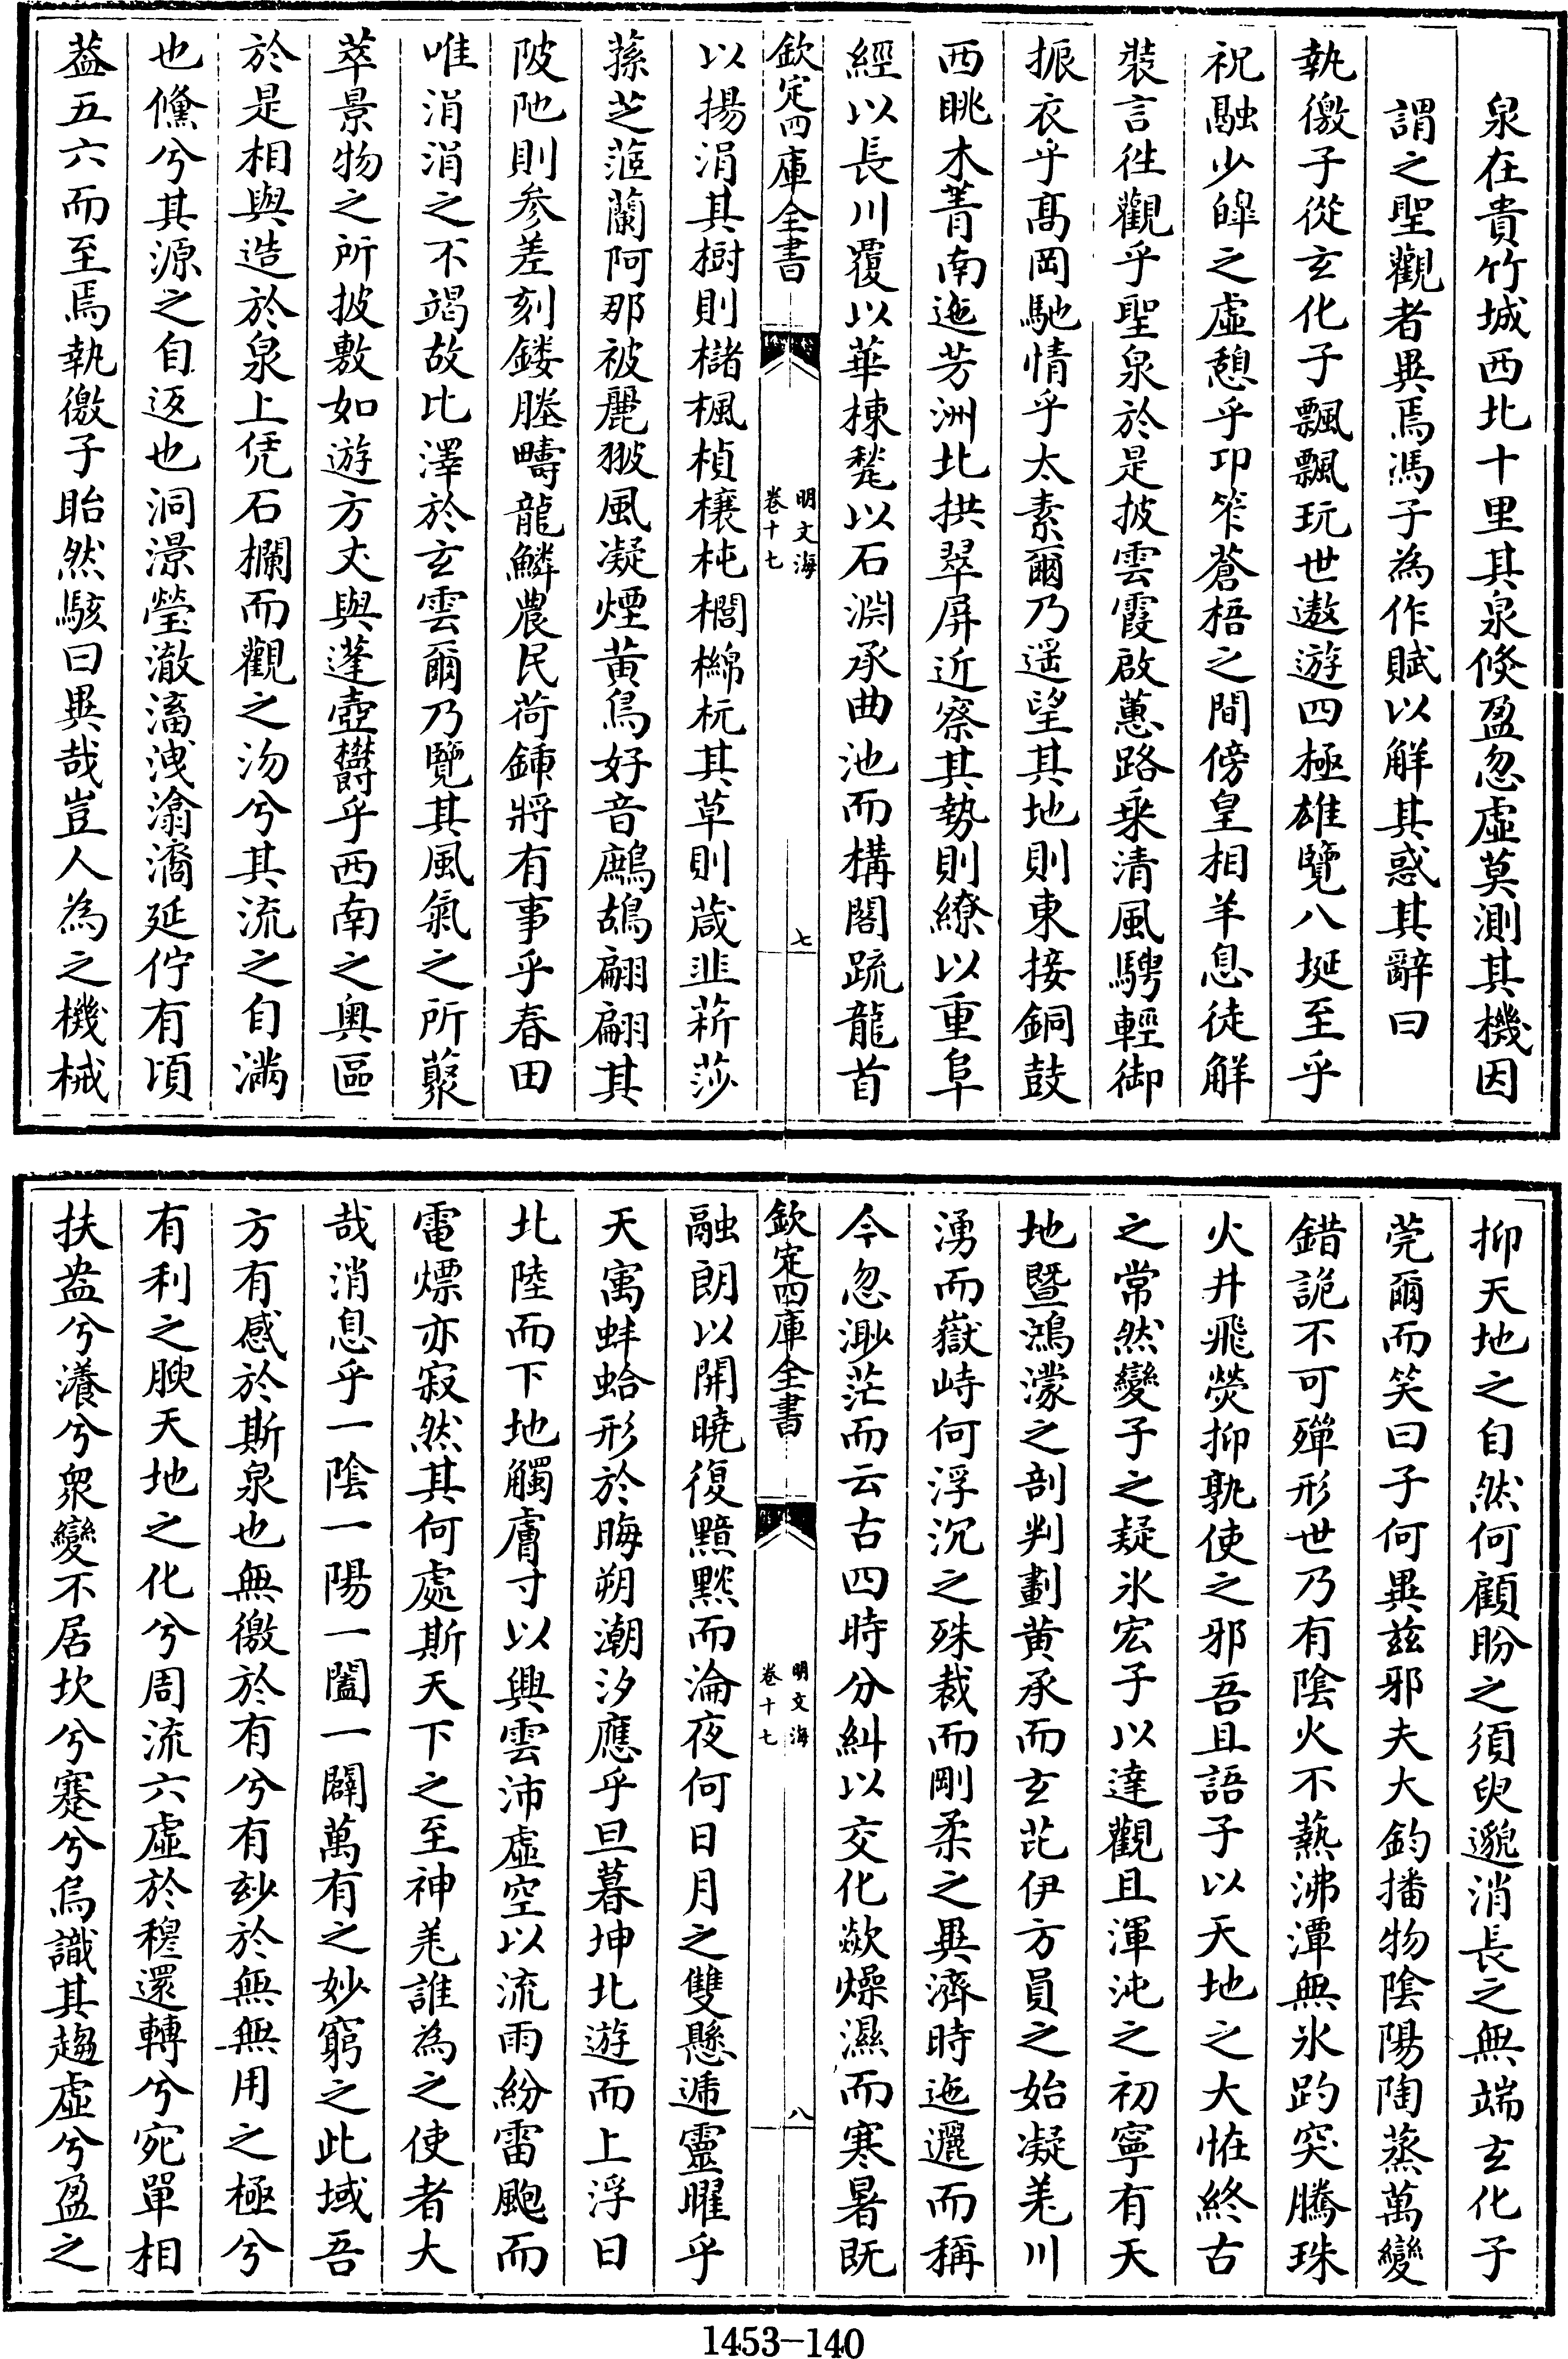 泉在貴竹城西北十里其泉倏盈忽虛莫測其機因
謂之聖觀者異焉馮子為作賦以解其惑其辭曰
執徼子從玄化子飄飄玩世遨遊四極雄覽八埏至乎
祝融少皥之虛憩乎卭笮蒼梧之間傍皇相羊息徒解
裝言徃觀乎聖泉於是披雲霞啟蕙路乘清風騁輕御
振衣乎髙岡馳情乎太素爾乃遥望其地則東接銅鼓
西眺木菁南迤芳洲北拱翠屏近察其勢則繚以重阜
經以長川覆以華棟甃以石淵承曲池而構閣疏龍首
欽定四庫全書
明文海
卷十七
七
以揚涓其樹則櫧楓楨欀杶櫚櫋杬其草則葴韭菥莎
蓀芝菹蘭阿那被麗翍風凝煙黄鳥好音鷓鴣翩翩其
陂陁則參差刻鏤塍疇龍鱗農民荷鍤將有事乎春田
唯涓涓之不竭故比澤於玄雲爾乃覽其風氣之所聚
萃景物之所披敷如遊方丈與蓬壺欝乎西南之奥區
於是相與造於泉上凭石欄而觀之沕兮其流之自滿
也儻兮其源之自返也洞澋瑩澈滀洩滃潏延佇有頃
葢五六而至焉執徼子眙然駭曰異哉豈人為之機械
抑天地之自然何顧盼之須臾邈消長之無端玄化子
莞爾而笑曰子何異兹邪夫大鈞播物陰陽陶蒸萬變
錯詭不可殫形世乃有陰火不熱沸潭無氷趵突騰珠
火井飛熒抑孰使之邪吾且語子以天地之大恠終古
之常然變子之疑氷宏子以達觀且渾沌之初寧有天
地曁鴻濛之剖判劃黄承而玄芘伊方員之始凝羌川
湧而嶽峙何浮沉之殊裁而剛柔之異濟時迤邐而稱
今忽渺茫而云古四時分糾以交化歘燥濕而寒暑既
欽定四庫全書
明文海
卷十七
八
融朗以開曉復黯黕而淪夜何日月之雙懸遞靈曜乎
天寓蚌蛤形於晦朔潮汐應乎旦暮坤北遊而上浮日
北陸而下地觸膚寸以興雲沛虛空以流雨紛雷颮而
電熛亦寂然其何處斯天下之至神羌誰為之使者大
哉消息乎一陰一陽一闔一闢萬有之妙窮之此域吾
方有感於斯泉也無徼於有兮有玅於無無用之極兮
有利之腴天地之化兮周流六虛於穆還轉兮宛單相
扶盎兮瀁兮衆變不居坎兮蹇兮烏識其趨虛兮盈之
1453-140